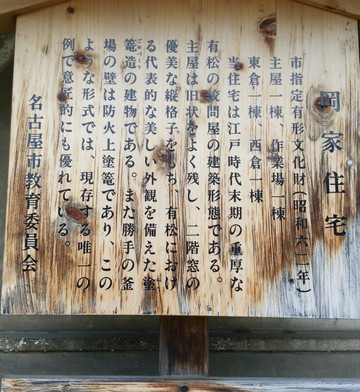 岡家住宅
市指定有形文化財(昭和六二年)
主屋一棟、作業場一棟
東倉一棟、西倉一棟
当住宅は江戸時代末期の重厚な
有松の絞問屋の建築形態である。
主屋は旧状をよく残し、二階窓の
優美な縦格子をもち、有松におけ
る代表的な美しい外観を備えた塗
篭造の建物である。また勝手の釜
場の壁は防火上塗篭であり、この
ような形式では、現存する唯一の
例で意匠的にも優れている。
名古屋市教育委員会